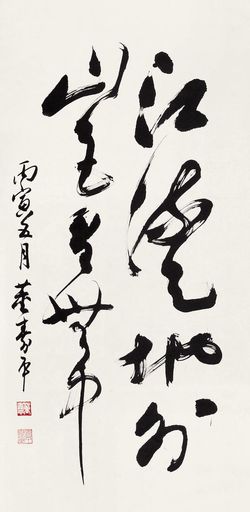 江流天地外
山色有無中
丙寅五月 董壽平